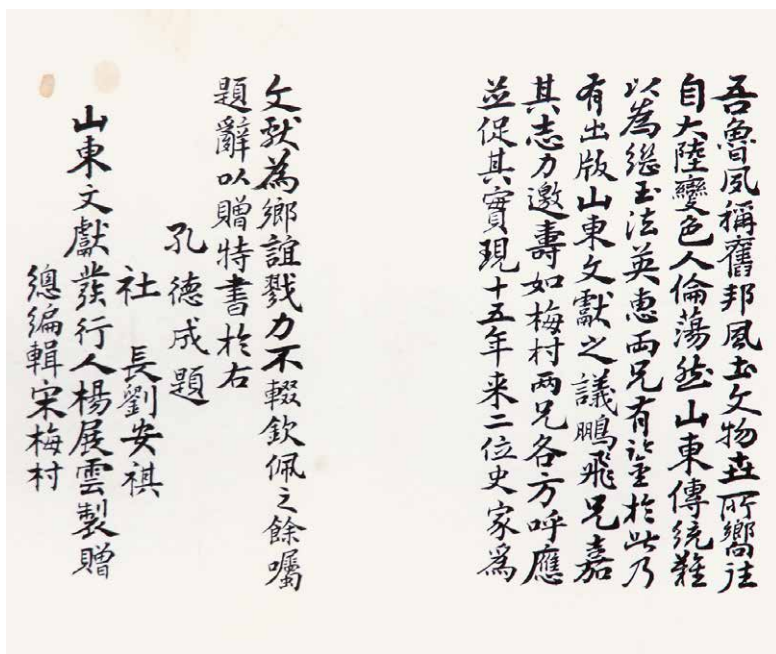 吾魯夙稱舊邦風土文物世所嚮往
自大陸變色人倫蕩然山東傳統難
以為繼玉法英惠兩兄有鑒於此乃
有出版山東文獻之議鵬飛兄嘉
其志力邀壽如梅村兩兄各方呼應
並促其實現十五年来二位史家為
文獻為鄉誼戮力不輟欽佩之餘囑
題辭以贈特書於右
孔德成題
社長劉安祺
山東文獻發行人楊展雲製贈
總編輯宋梅村